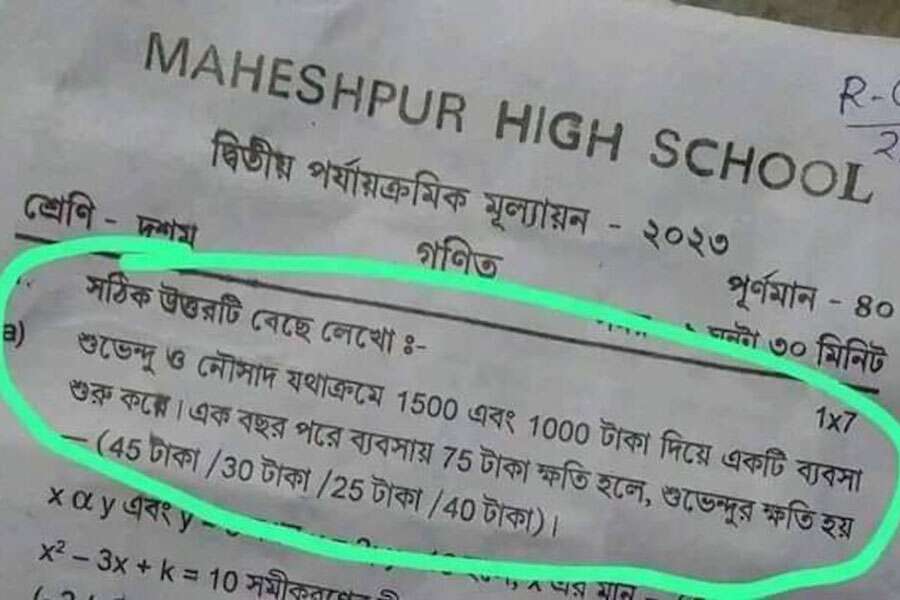 MAHESHPUR HIGH SCHOOL
R-
দ্বিতীয় পর্যায়ক্রমিক মূল্যায়ন - ২০২৩
শ্রেণি - দশম
গণিত
পূর্ণমান - 40
৩০ মিনিট
সঠিক উত্তরটি বেছে লেখো ঃ-
1x7
a) শুভেন্দু ও নৌসাদ যথাক্রমে 1500 এবং 1000 টাকা দিয়ে একটি ব্যবসা
শুরু করে। এক বছর পরে ব্যবসায় 75 টাকা ক্ষতি হলে, শুভেন্দুর ক্ষতি হয়
— (45 টাকা /30 টাকা /25 টাকা /40 টাকা)।
x α y এবং y
x² – 3x + k = 10 সমীকরণের